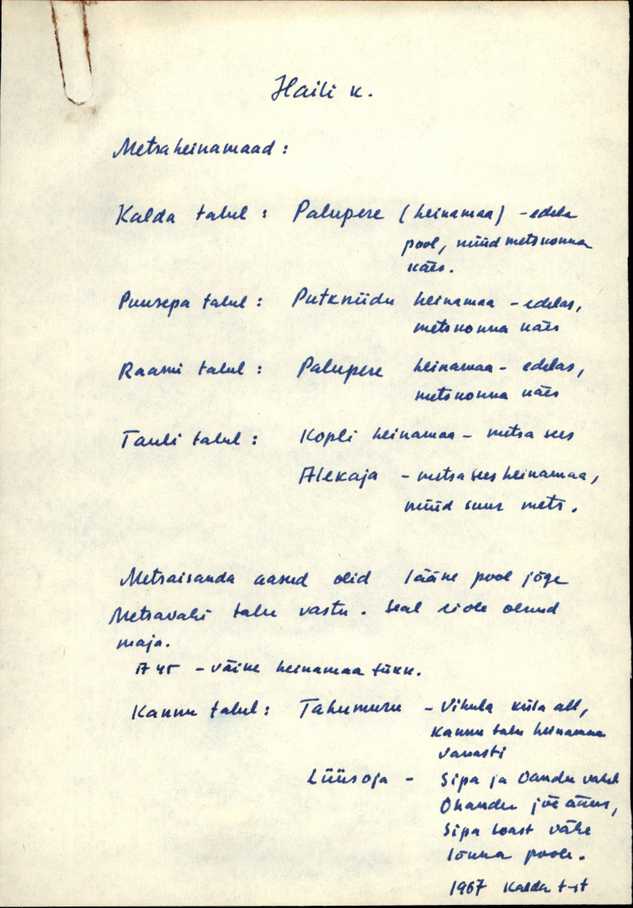 Haili k.
Metsaheinamaad:
Kalda talul: Palupere (heinamaa) - edela
pool, nüüd metskonna
käes.
Puusepa talul: Putkniidu heinamaa - edelas,
metskonna käes
Raami talul: Palupere heinamaa - edelas,
metskonna käes
Tauli talul: Kopli heinamaa - metsa sees
Alekaja - metsa sees heinamaa,
nüüd suur mets.
Metsaisanda aasud olid lääne pool jõge
Metsavahi talu vastu. Seal ei ole olnud
maja.
- väike heinamaa tükk.
Kannu talul: Tahumuru - Vihula küla all,
Kannu talu heinamaa
vanasti
Lüüsoja - Sipa ja Oandu vahel
Ohandu jõe ääres,
Sipa loast vähe
lõuna poole.
1967 Kalda t-st